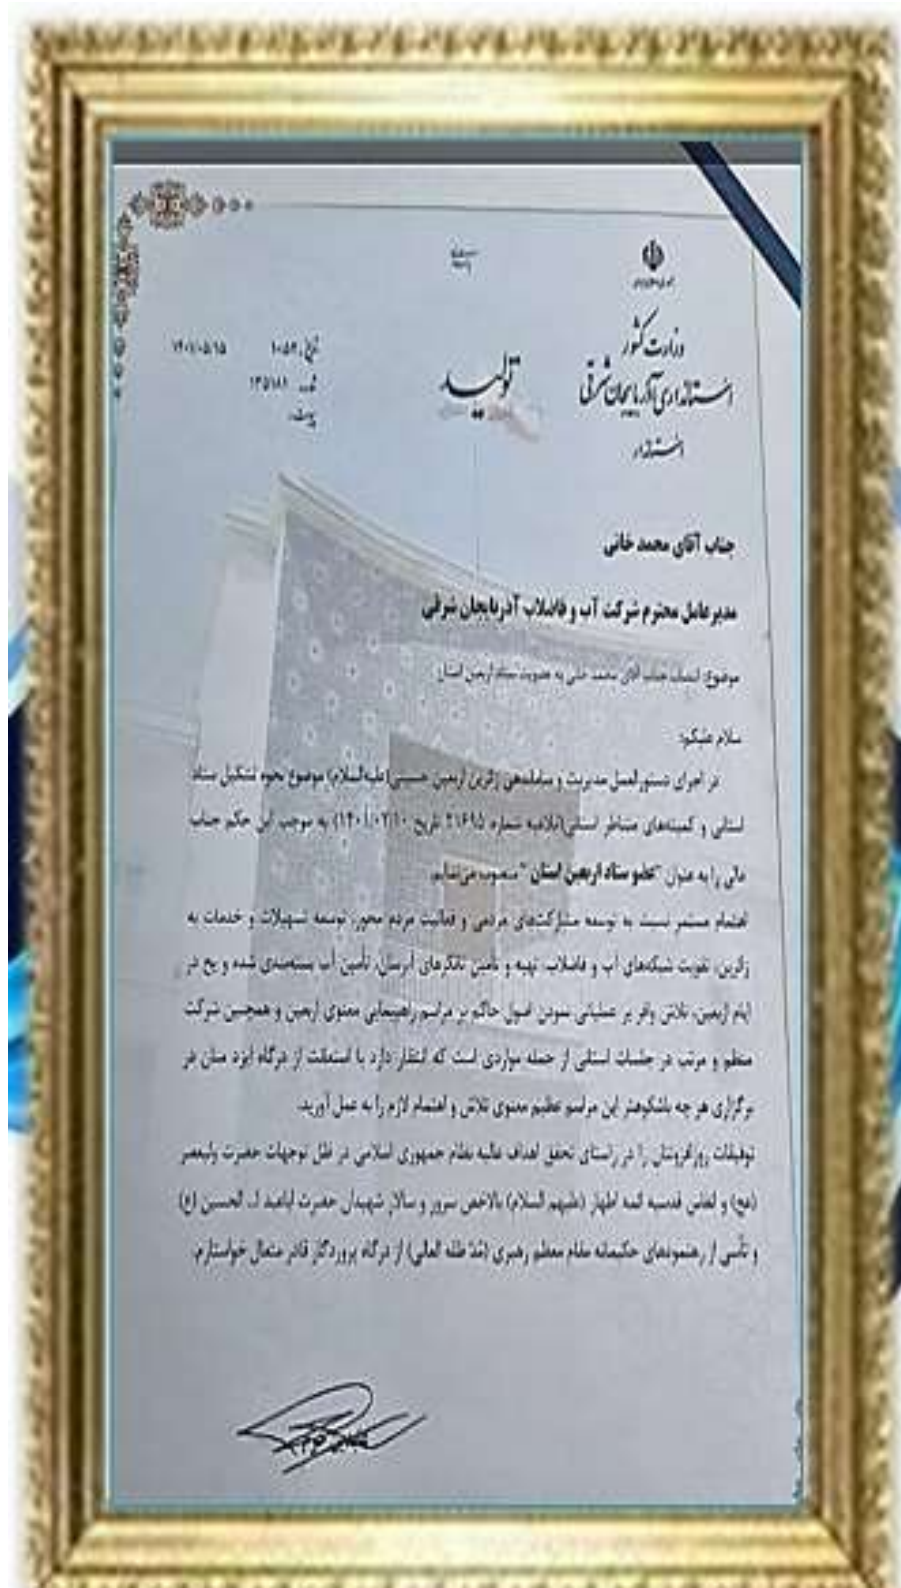 وزارت کشور
استانداری آذربایجان شرقی
استاندار
تولید
تاریخ: ۱۴۰۱/۰۵/۱۵
شماره: ۱۳۵۱۸۱
پیوست:
جناب آقای محمد خانی
مدیر عامل محترم شرکت آب و فاضلاب آذربایجان شرقی
موضوع: انتصاب جناب آقای محمد خانی به عضویت ستاد اربعین استان
سلام علیکم؛
در اجرای دستورالعمل مدیریت و ساماندهی زائرین اربعین حسینی(علیه‌السلام) موضوع نحوه تشکیل ستاد
استانی و کمیته‌های متناظر استانی(ابلاغیه شماره ۲۱۶۹۵ تاریخ ۱۴۰۱/۰۲/۱۰) به موجب این حکم جناب
عالی را به عنوان "عضو ستاد اربعین استان" منصوب می‌نمایم.
اهتمام مستمر نسبت به توسعه مشارکت‌های مردمی و فعالیت مردم محور، توسعه تسهیلات و خدمات به
زائرین، تقویت شبکه‌های آب و فاضلاب، تهیه و تأمین تانکرهای آبرسان، تأمین آب بسته‌بندی شده و یخ در
ایام اربعین، تلاش وافر بر عملیاتی نمودن اصول حاکم بر مراسم راهپیمایی معنوی اربعین و همچنین شرکت
منظم و مرتب در جلسات استانی از جمله مواردی است که انتظار دارد با استعانت از درگاه ایزد منان در
برگزاری هر چه باشکوهتر این مراسم عظیم معنوی تلاش و اهتمام لازم را به عمل آورید.
توفیقات روزافزونتان را در راستای تحقق اهداف عالیه نظام جمهوری اسلامی در ظل توجهات حضرت ولیعصر
(عج) و انفاس قدسیه ائمه اطهار (علیهم السلام) بالاخص سرور و سالار شهیدان حضرت اباعبد ا... الحسین (ع)
و تأسی از رهنمودهای حکیمانه مقام معظم رهبری (مُدّ ظله العالی) از درگاه پروردگار قادر متعال خواستارم.